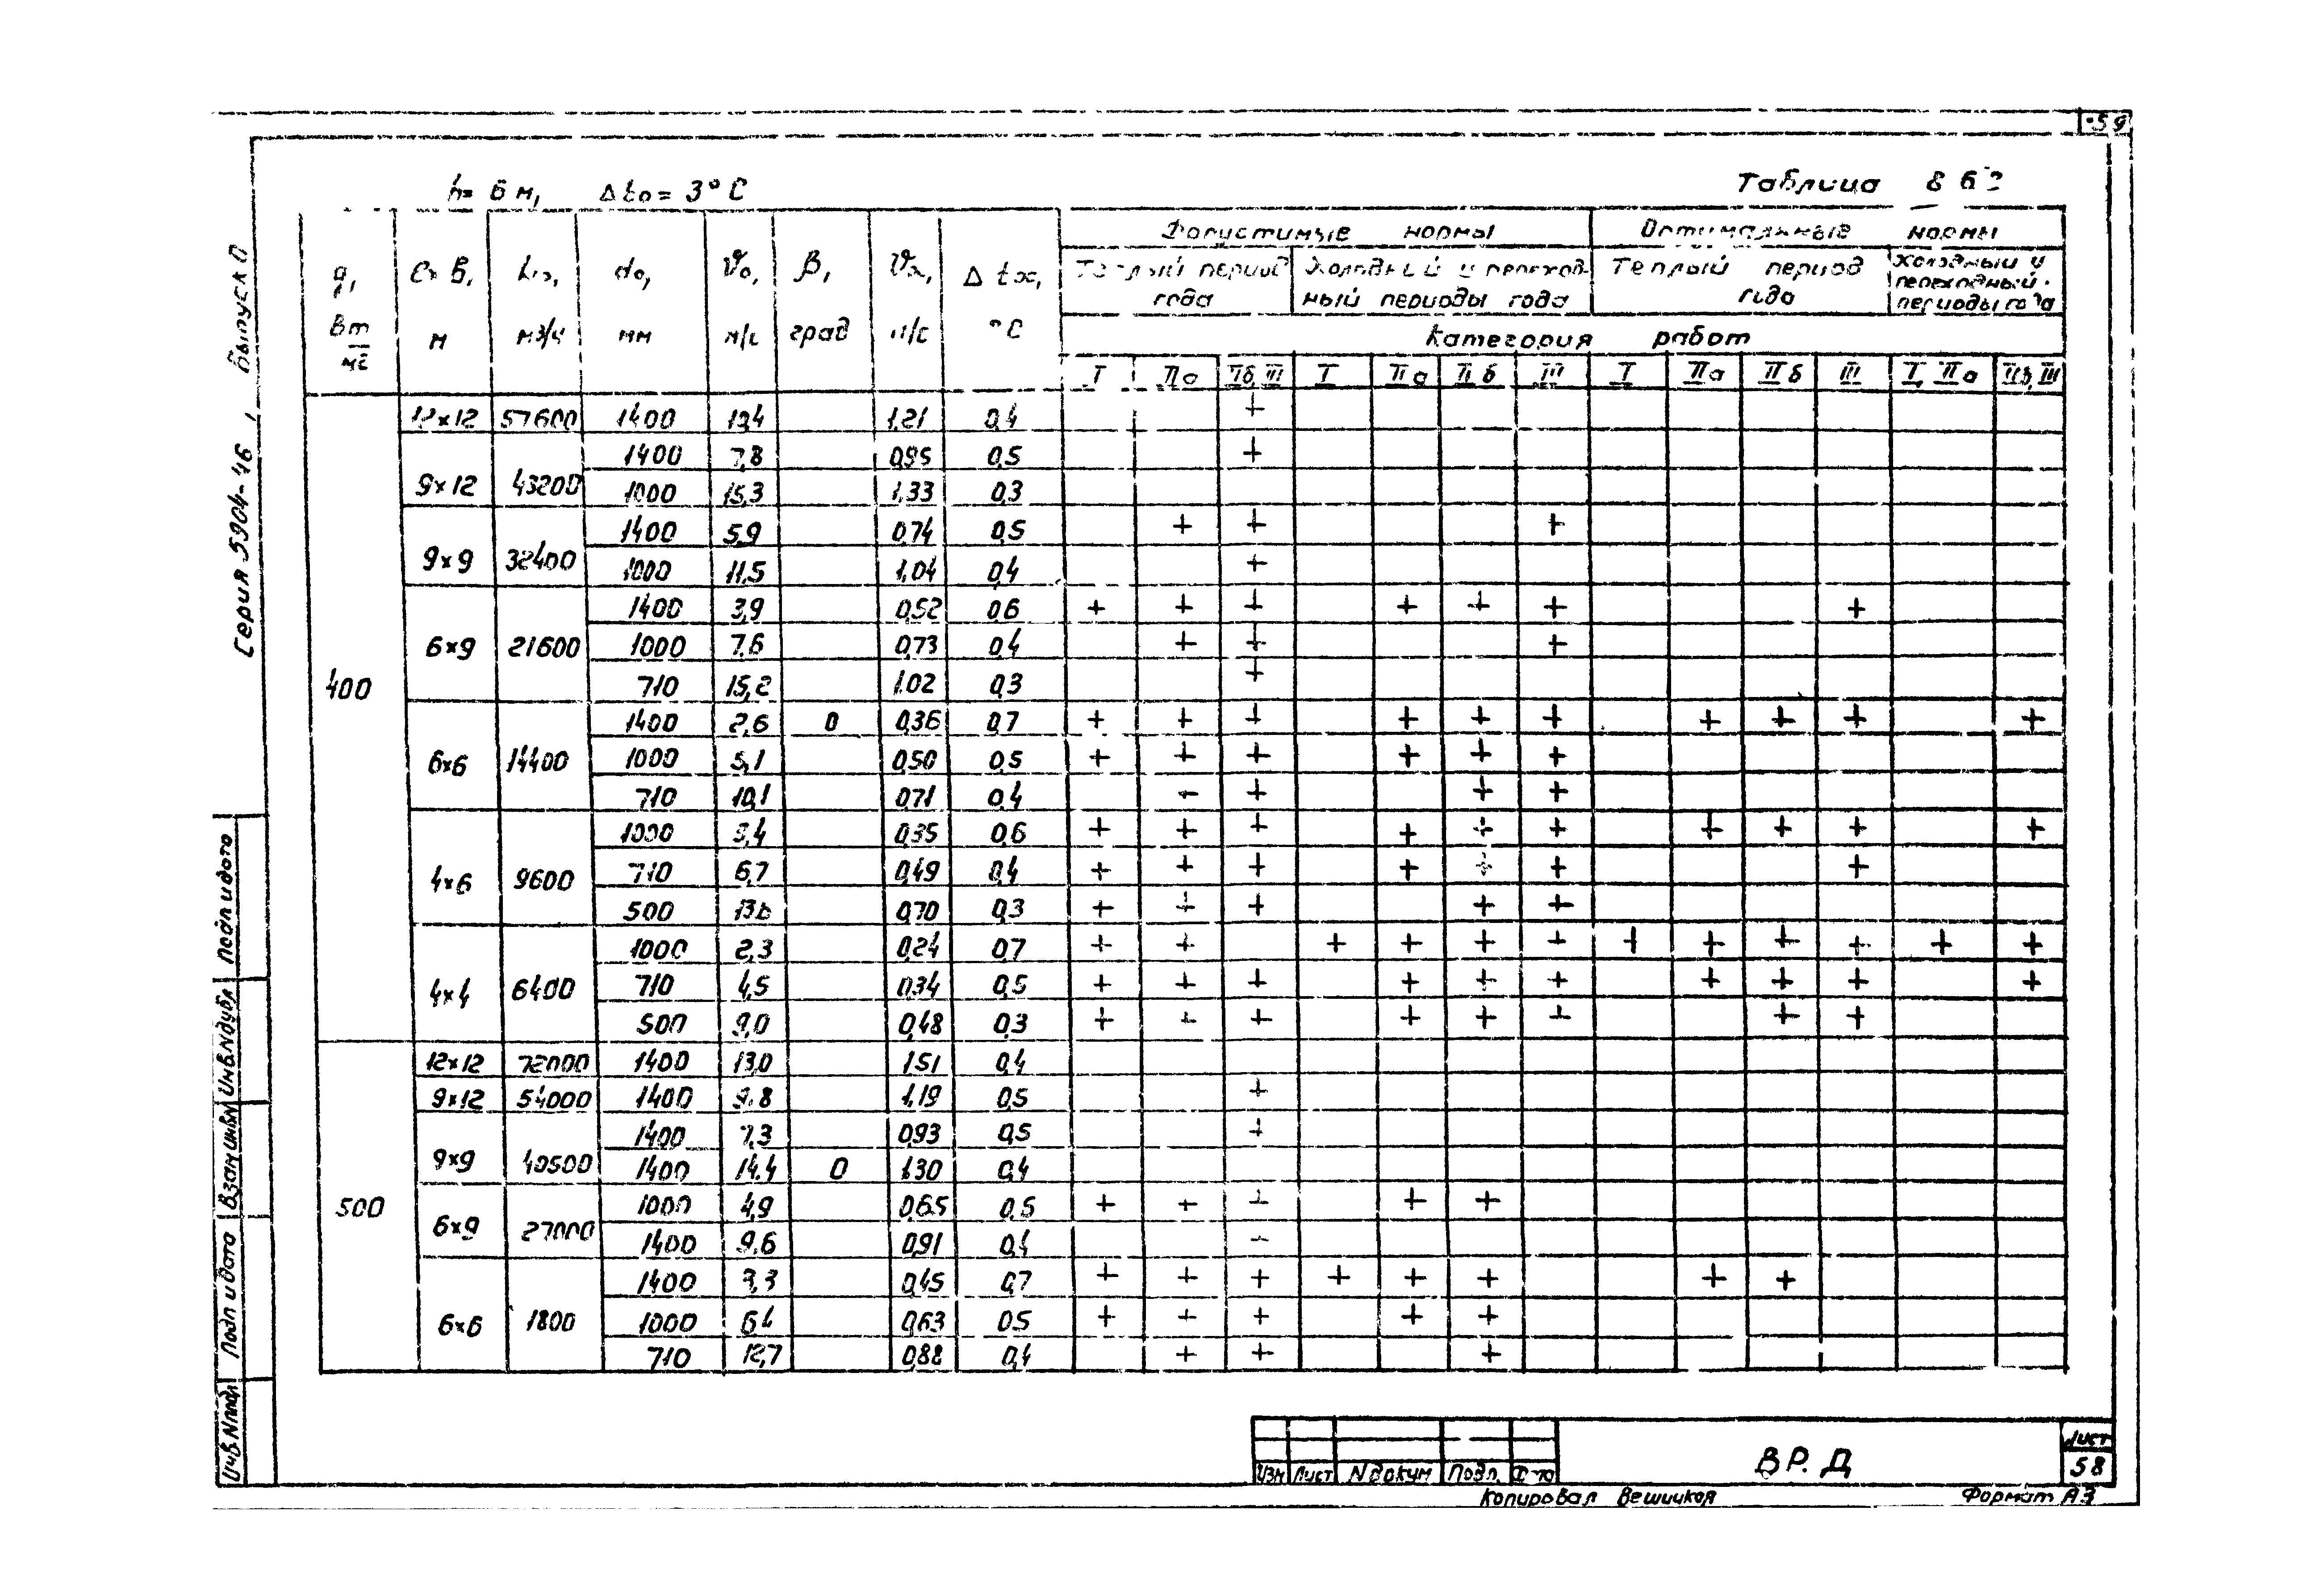 59
h= 6 м, Δto = 3°C
Таблица 8 6
Допустимые нормы Оптимальные нормы
Теплый период года Холодный и переходный периоды года Теплый период года Холодный и переходный периоды года
q, Вт/м² C×B, м м³/ч do, мм м/с β, град м/с Δ tx, °C
Категория работ
I IIа IIб, III I IIа IIб III I IIа IIб III I, IIа IIб, III
400 12×12 57600 1400 13,4 1,21 0,4 +
9×12 43200 1400 7,8 0,95 0,5 +
1000 15,3 1,33 0,3
9×9 32400 1400 5,9 0,74 0,5 + + +
1000 11,5 1,04 0,4 +
6×9 21600 1400 3,9 0,52 0,6 + + + + + + +
1000 7,6 0,73 0,4 + + +
710 15,2 1.02 0,3 +
6×6 14400 1400 2,6 0 0,36 0,7 + + + + + + + + + +
1000 5,1 0,50 0,5 + + + + + +
710 10,1 0,71 0,4 + + + +
4×6 9600 1000 3,4 0,35 0,6 + + + + + + + + + +
710 6,7 0,49 0,4 + + + + + + +
500 0,70 0,3 + + + + +
4×4 6400 1000 2,3 0,24 0,7 + + + + + + + + + + + +
710 4,5 0,34 0,5 + + + + + + + + + +
500 9,0 0,48 0,3 + + + + + + + +
500 12×12 72000 1400 13,0 1,51 0,4
9×12 54000 1400 9,8 1,19 0,5 +
9×9 40500 1400 7,3 0,93 0,5 +
1400 14,4 0 1,30 0,4
6×9 27000 1000 4,9 0,65 0,5 + + + + +
1400 9,6 0,91 0,4 +
6×6 1800 1400 3,3 0,45 0,7 + + + + + + + +
1000 6,4 0,63 0,5 + + + + +
710 12,7 0,88 0,4 + + +
Серия 5.904-46, Выпуск 0
Подп и дата
Инв.N дубл
Взам инв.N
Подп и дата
Инв.N подл
Изм Лист N докум Подп.
ВР. Д
Лист
58
Копировал Вешицкая
Формат А3